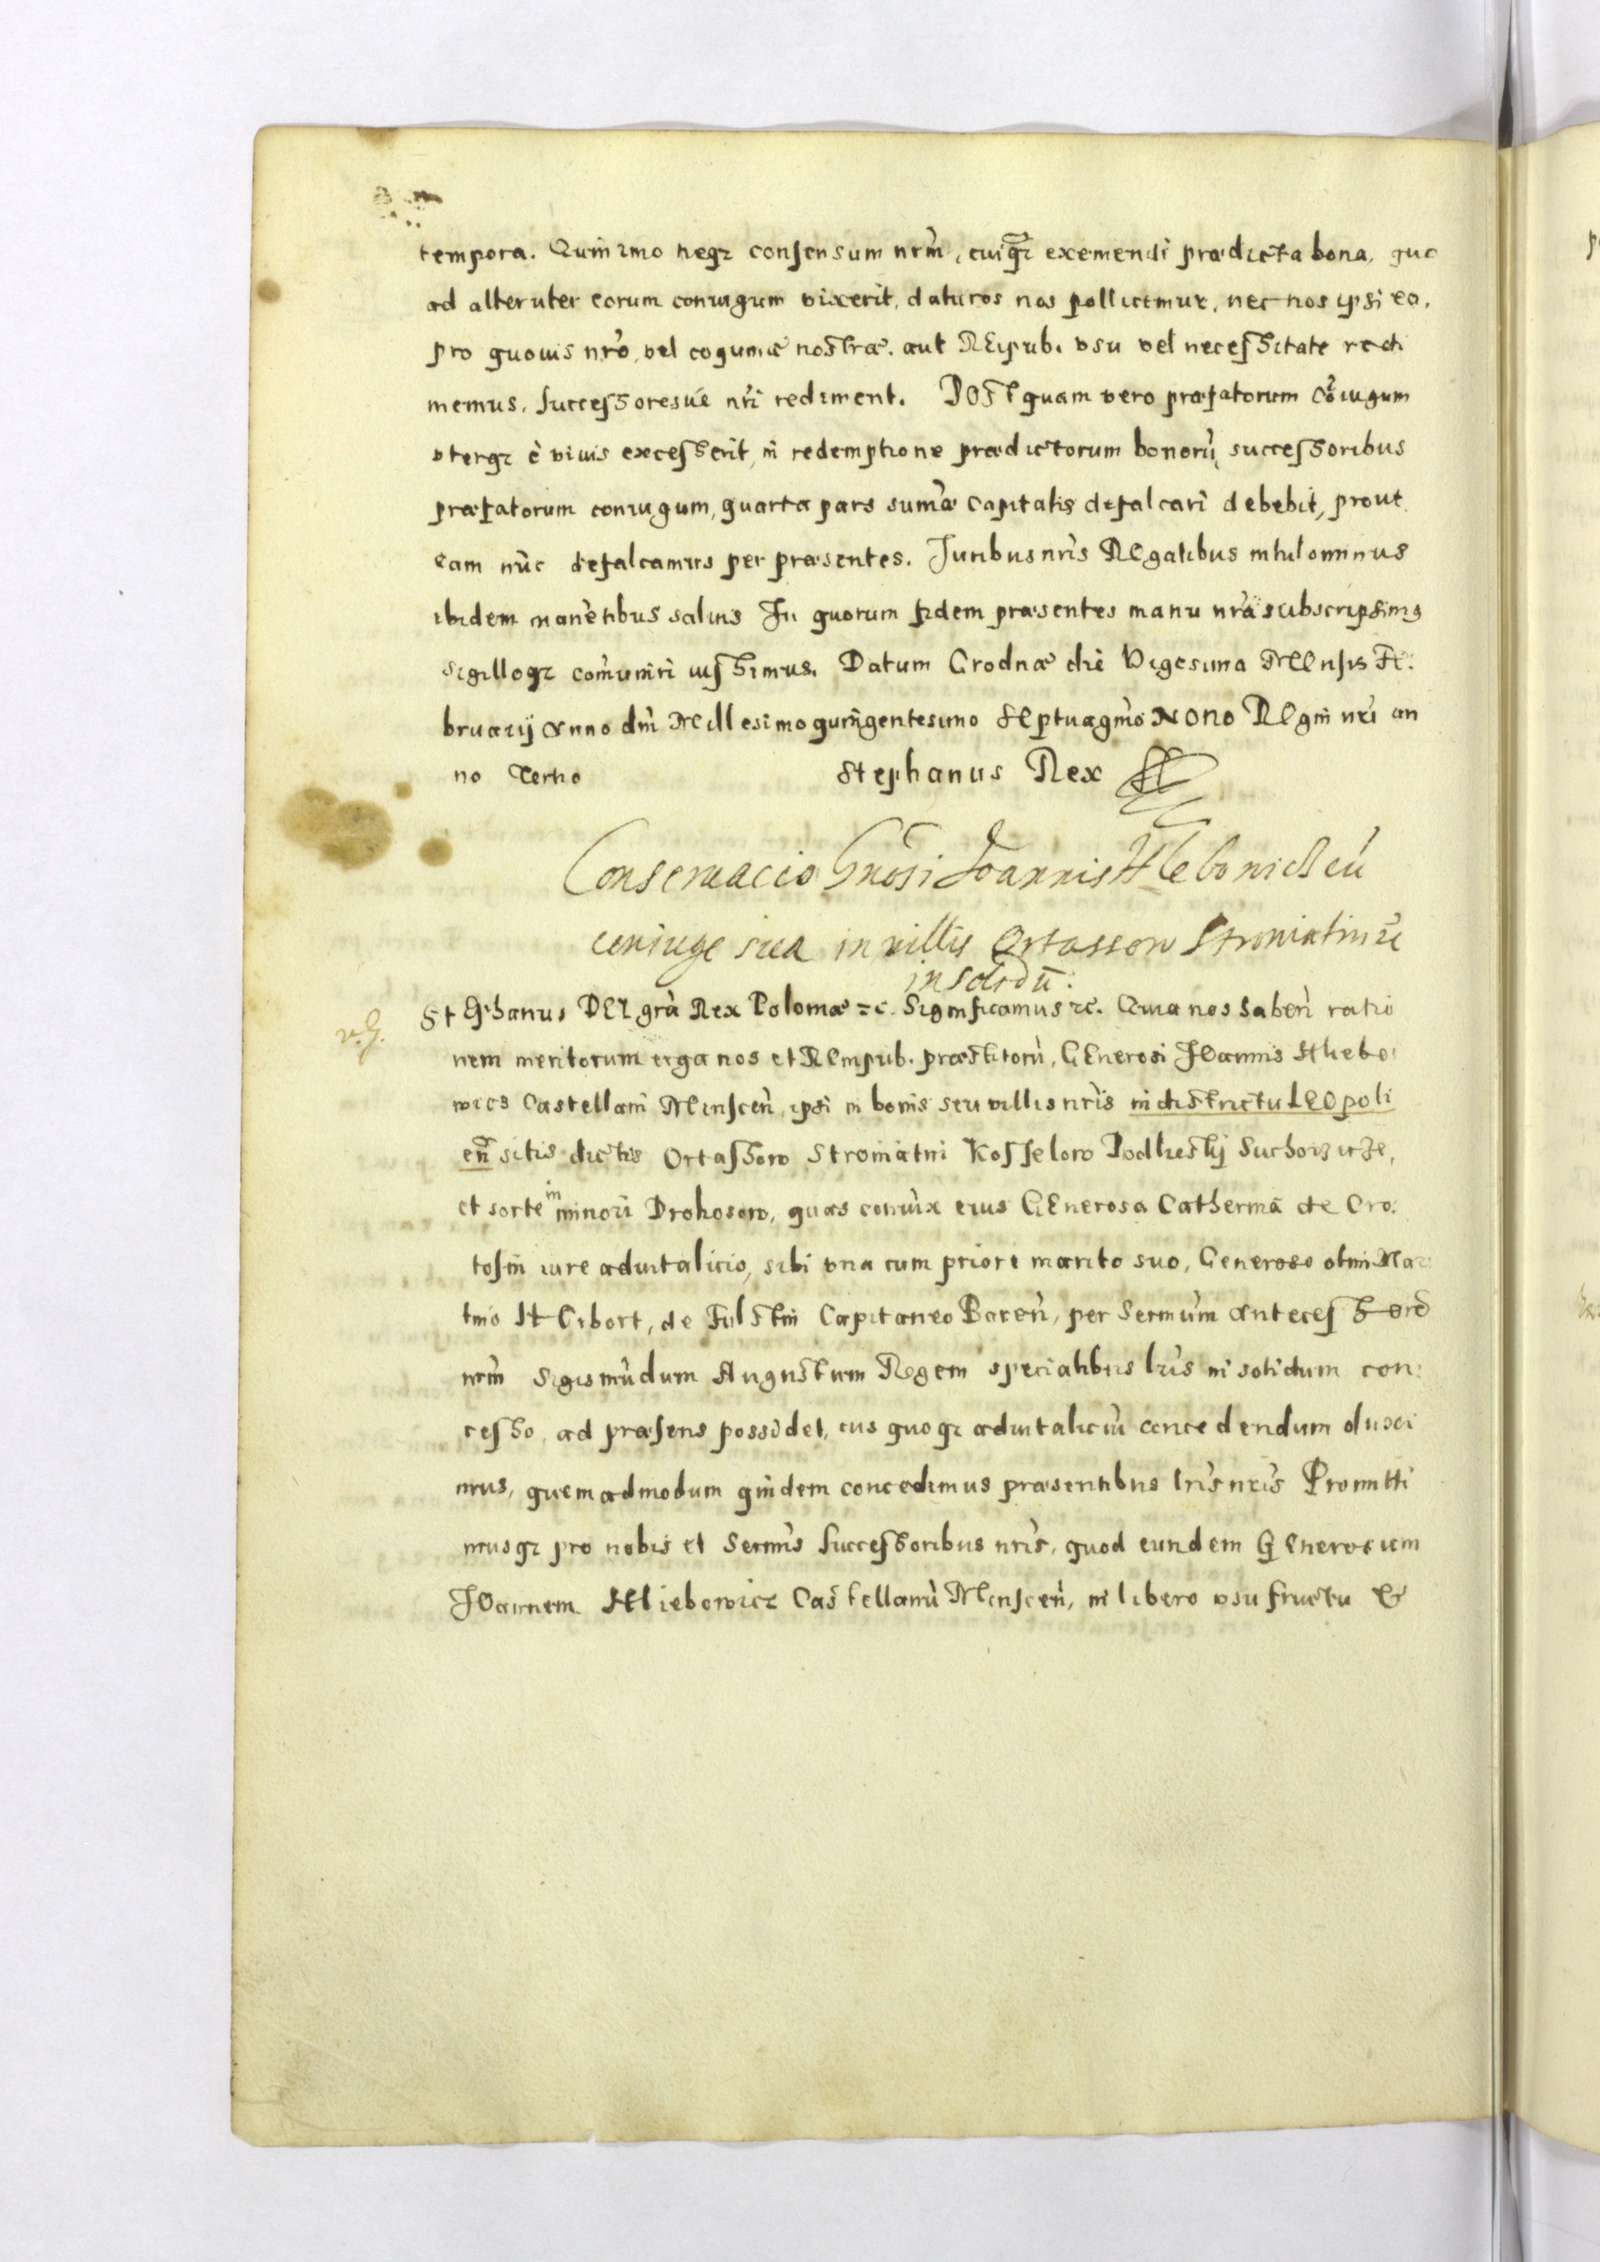 tempora. Quin imo neqz consensum nrm̃, cuiq̃z exemendi prædicta bona, quo
ad alteruter eorum coniugum vixerit, daturos nos pollicemur, nec nos ipsi ea,
pro quouis nr̃o, vel coquinæ nostræ. aut REipub. vsu vel necessitate redi
memus, successoresúe nr̃i rediment. Postquam vero præfatorum Cõiugum
vterqz è viuis excesserit, in redemptione prædictorum bonorũ, successoribus
præfatorum coniugum, quarta pars sum̃æ capitalis defalcari debebit, prout
eam nũc defalcamus per præsentes. Juribus nr̃is REgalibus nihilominus
ibidem manẽtibus saluis In quorum fidem præsentes manu nr̃a subscripsimus
sigilloqz com̃uniri iussimus. Datum Grodnæ die Vigesima MEnsis FE:
bruarij Anno dni Millesimo quingentesimo SEptuagm̃o NONO REgni nr̃i an
no Tertio Stephanus Rex
Conseruacio Gn̄osi Joannis Hlebowicz cũ
coniuge sua in villis Ortassow Stroniatin zc
in solidũ:
v. g.
StEphanus DEI gr̃a Rex Poloniæ zc. Significamus zc. Quia nos haben̄ ratio
nem meritorum erga nos et REmpub. præstitorũ, GEnerosi JOannis Hlebo:
wicz Castellani MEnscen̄, ipsi in bonis seu villis nr̃is in districtu LEOpoli
en̄ sitis dictis Ortassow Stroniatni Kosselow Podliesky Suchowicze,
et sorte in minori Drohosow, quas coniũx eius GEnerosa Catherina de Cro:
tosin iure aduitalicio, sibi vna cum priori marito suo, Generoso olim Mar
tino HErbort, de Fulstin Capitaneo Baren̄, per Sermũm Antecessorẽ
nrm̃ Sigismũdum Augustum REgem specialibus lr̃is in solidum con:
cesso, ad præsens possidet, ius quoqz aduitaliciũ concedendum duxi
mus, quemadmodum quidem concedimus præsentibus lr̃is nr̃is Promitti
musqz pro nobis et Sermis̃ successoribus nr̃is, quod eundem GEnerosum
JOannem Hliebowicz Castellanũ MEnscen̄, in libero vsufructu &